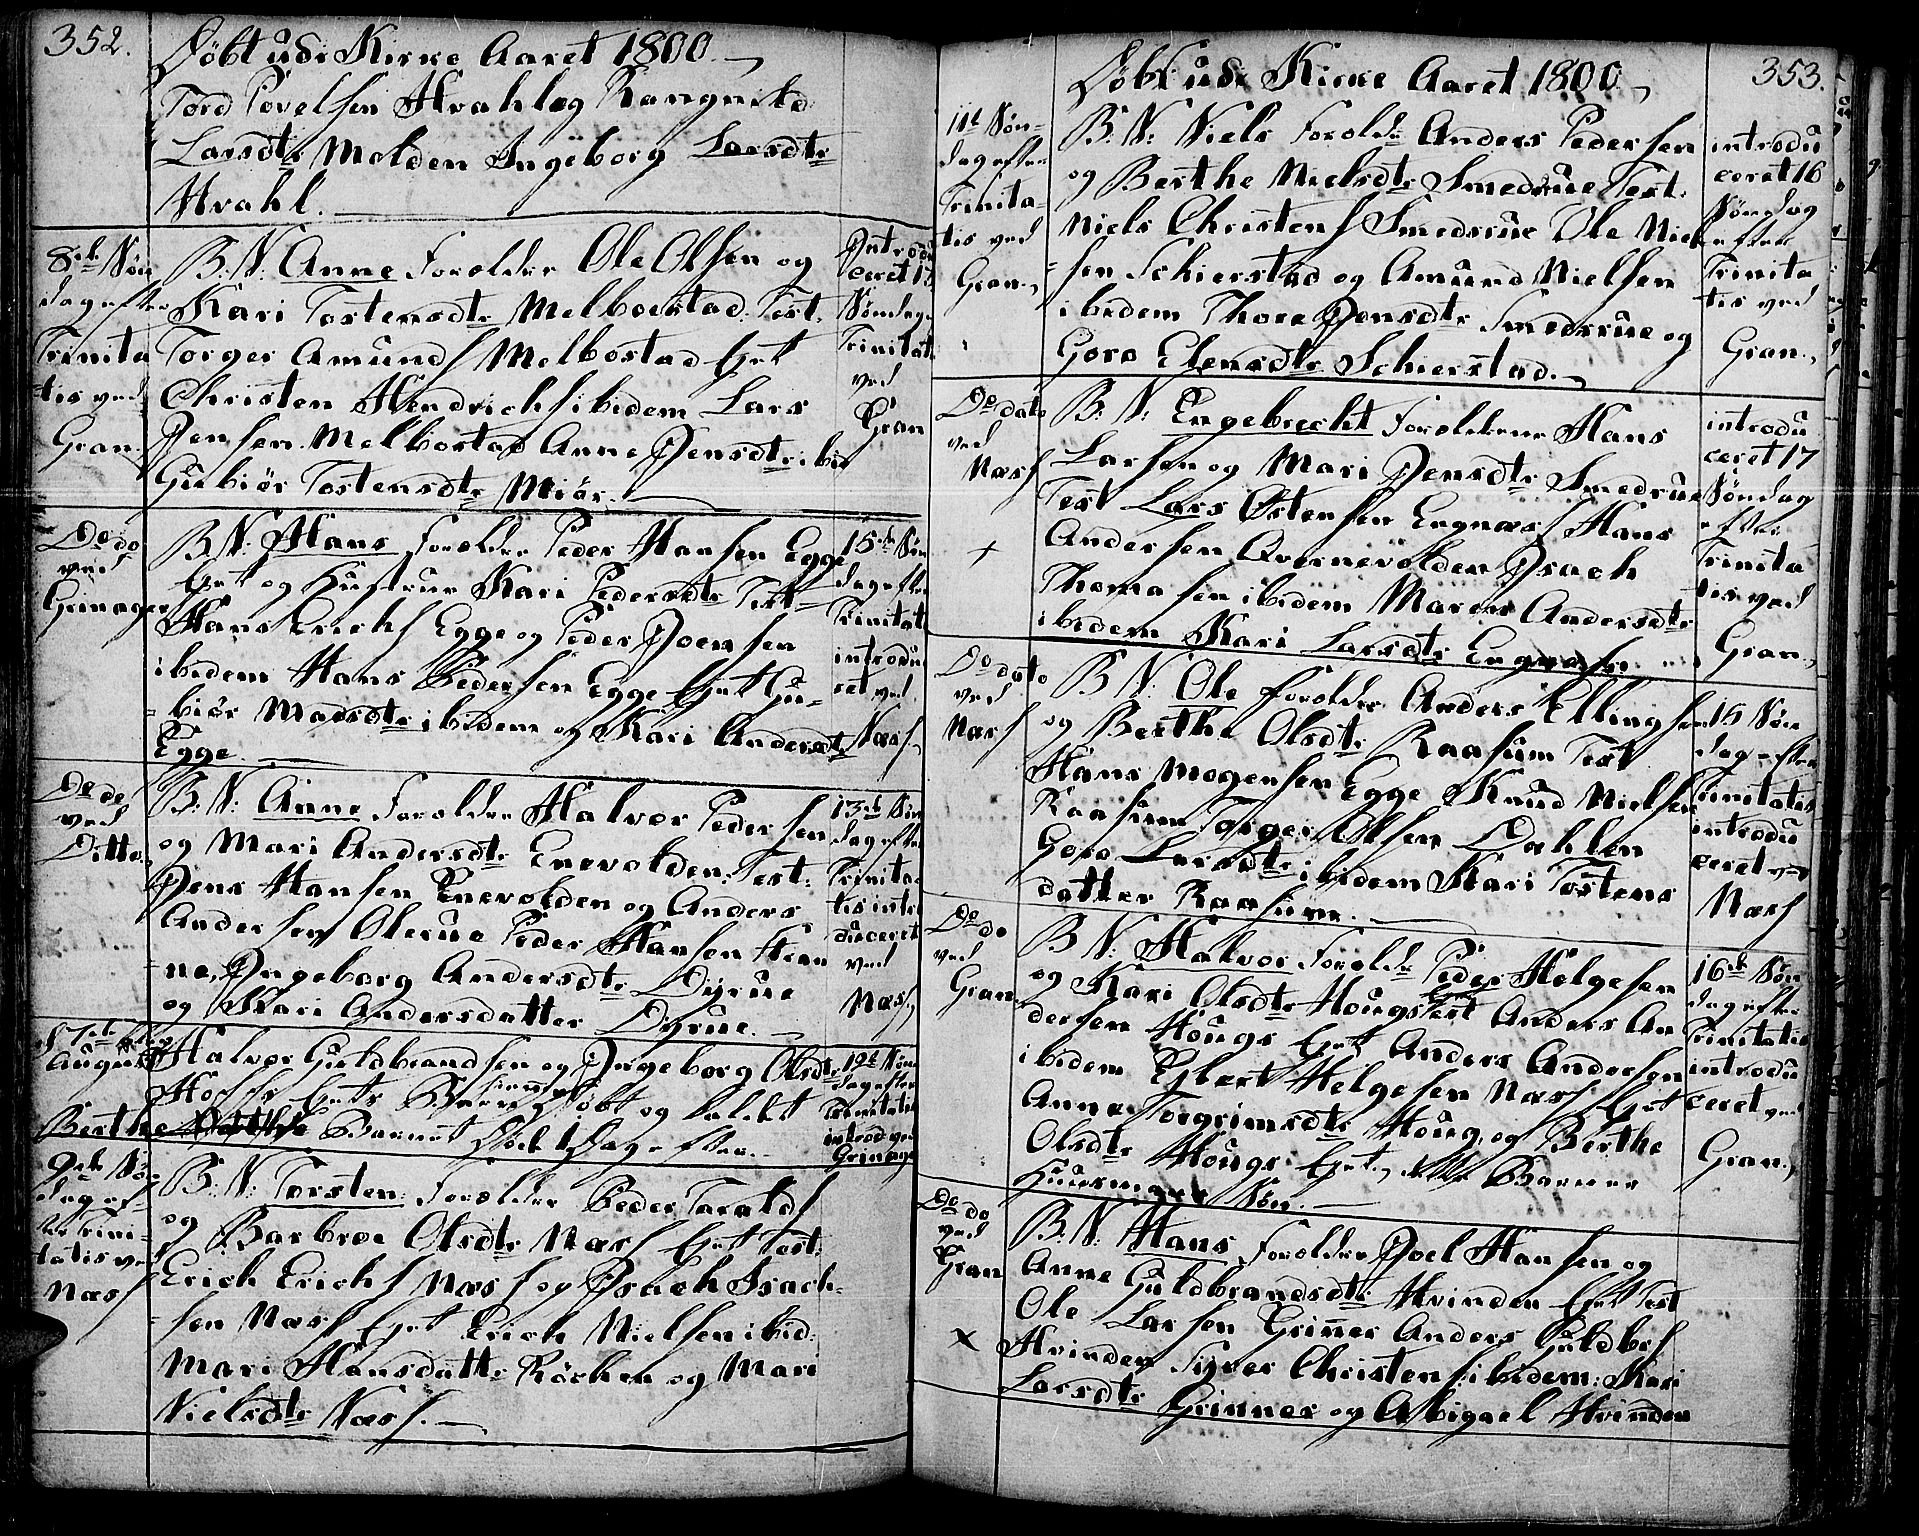 352.
Döbt udi Kirke Aaret 1800
Tord Povelsen Hvahl og Rangnild
Larsdtr Molden Ingeborg Larsdtr
Hvahl.
8de Søn
dag efter
Trinita
tis ved
Gran
B: N: Anne Forældre Ole Olsen og
Kari Tostensdtr Melbostad. Test.
Torger Amunds Melbostad Ejet
Christen Hendrichs ibidem Lars
Jensen Melbostad Anne Jensdtr ibi
Gubiör Tostensdtr Miör.
Introdu
ceret 13
Søndag
Trinitat
ved
Gran
Do do
ved
Grinager
B. N: Hans Forældre Peder Hansen Egge
Ejet og Hustrue Kari Pedersdtr Test
Hans Erichs Egge og Peder Joensen
ibidem Hans Pedersen Egge Ejet Gu-
biör Madsdtr ibidem og Kari Andersdt
Egge.
15de Søn
dag efter
Trinitat
introdu
cet ved
Næss
Do do
ved
Ditto
B. N: Anne Forældre Halvor Pedersen
og Mari Andersdtr Enevolden. Test:
Jens Hansen Enevolden og Anders
Andersen Olerue Peder Hansen Gran
ne, Ingeborg Andersdtr Dyrue
og Mari Andersdatter Dyrue.
13de Søn
dag efter
Trinita
tis intro
duceret
ved
Næss
August
Halvor Guldbrandsen og Ingeborg Olsdtr
Ejets Barn döbt og kaldet
Berthe Barnet Död 1 Dag efter.
12te Søn
dag efter
Trinitatis
introd ved
Grinager
9de Søn
dag ef-
ter Trini-
tatis ved
Næss
B: N: Torsten Forældre Peder Taralds
og Barbroe Olsdtr Næss Ejet Test:
Erich Erichs Næss og Isach Isach-
sen Næss Ejet Erich Nielsen ibid:
Mari Hansdattr Röchen og Mari
Nielsdtr Næss.
353.
Döbt udi Kirke Aaret 1800
11te Søn-
dag efter
Trinita-
tis ved
Gran
B: N: Niels Forældr Anders Pedersen
og Berthe Nielsdtr Smedsrue Test.
Niels Christens Smedsrue Ole Niel
sen Schierstad og Amund Nielsen
ibidem Thore Jensdtr Smedsrue og
Goro Elensdtr Schierstad.
introdu
ceret 16
Søndag
efter
Trinita
tis ved
Gran
Do dato
ved
Næss
+
B: N: Engebrecht Forældrene Hans
Larsen og Mari Jensdtr Smedsrue
Test Lars Østensen Engnæs Hans
Andersen Qvernevolden Isach
Thomasen ibidem Maren Andersdtr
ibidem Kari Larsdtr Engnæss
introdu
ceret 17
Søndag
efter
Trinita
tis ved
Gran
Do dato
ved
Næss
B N: Ole Forældre Anders Ellingsen
og Berthe Olsdtr Raasum Test
Hans Mogensen Egge Knud Nielsen
Raasum Torger Olsen Dahlen
Goro Larsdtr ibidem Kari Tostens
datter Raasum.
15 Søn
dag efter
Trinitatis
introdu
ceret ved
Næss
Do do
ved
Gran
B N: Halvor Forældr Peder Helgesen
og Kari Olsdtr Hougs Ejet Test Anders An
dersen Hougs Ejet Anders Andersen
ibidem Egbert Helgesen Næss Ejet
Anne Torgrimsdtr Houg, og Berthe
Olsdtr Hougs Ejet, Barnet
Huusmands Søn.
16de Søn
dag efter
Trinitatis
introdu
ceret ved
Gran
Do do
ved
Gran
x
B. N: Hans Forældre Joel Hansen og
Anne Guldbrandsdtr Hvinden Ejet Test
Ole Larsen Grinner Anders Guldbrs
Hvinden Syver Christens ibidem: Mari
Larsdtr Grinner og Abigael Hvinden